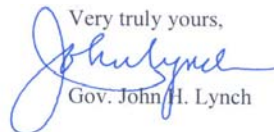 Very truly yours,
John Lynch
Gov. John H. Lynch